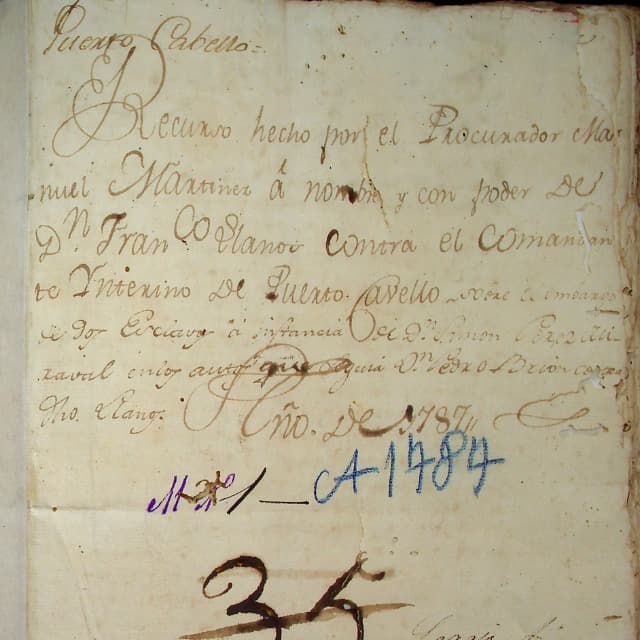 Puerto Cabello=
Recurso hecho por el Procurador Ma-
nuel Martinez á nombre y con poder de
Dn Franco Llanos contra el Coman͞dan
te Ynterino de Puerto Cavello sobre el embargo
de dos Esclavos á instancia de Dn Simon Perez
en los autos que sigue Dn Pedro Brion contra
dho. Llanos. Año. De 1787
1— A1787
35